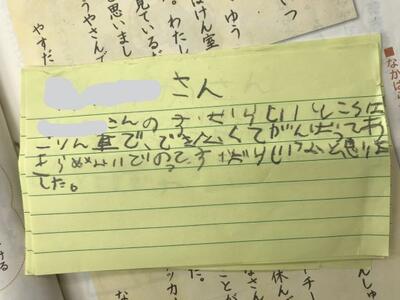 さん
さんのすばらしいところは
りん車で、できなくてがんばってあ
きらめないでのってすばらしいなと思いま
した。
いつ
ゆう
ほけん室
。わたし
見ているだ
思いまし
うやさんで
やすだ
なかはら
しゅう
チー
休ん
なさん
た。
ことが
ッカー
ける